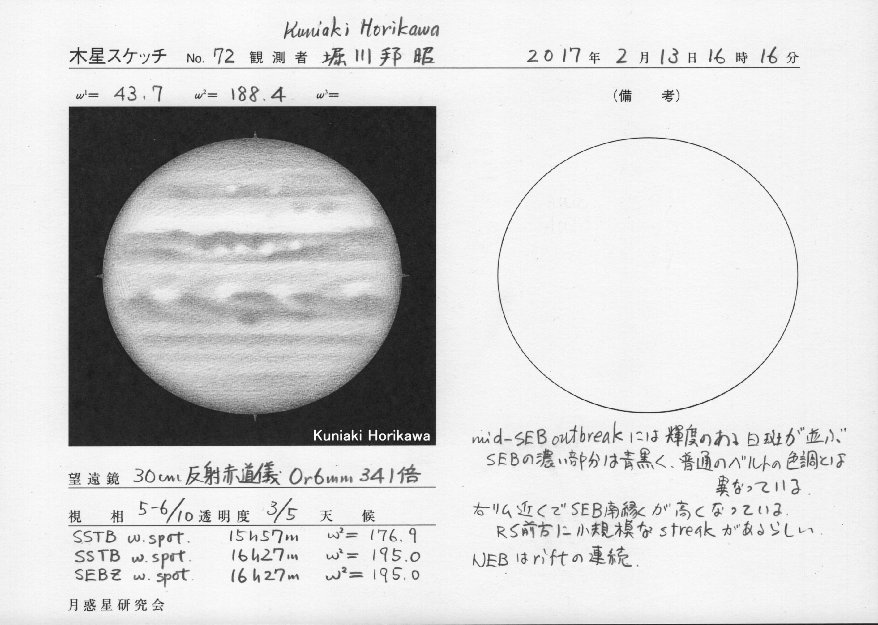 Kuniaki Horikawa
木星スケッチ No. 72 観測者 堀川邦昭 2017年 2月13日16時16分
ω¹= 43.7 ω²= 188.4 ω³=
(備 考)
Kuniaki Horikawa
mid-SEB outbreakには輝度のある白斑が並ぶ
SEBの濃い部分は青黒く、普通のベルトの色調とは
異なっている.
右リム近くでSEB南縁くが高くなっている.
RS前方に小規模なstreakがあるらしい.
NEBはriftの連続.
望遠鏡 30cm反射赤道儀 Or6mm 341倍
視相 5-6/10 透明度 3/5 天候
SSTB w.spot. 15h57m ω²= 176.9
SSTB w.spot. 16h27m ω²= 195.0
SEBZ w.spot. 16h27m ω²= 195.0
月惑星研究会